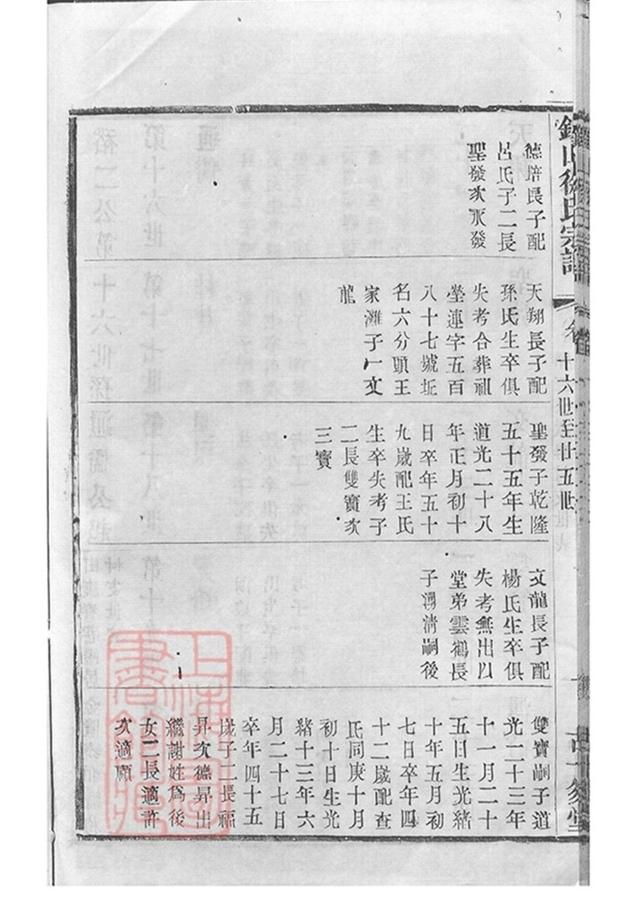 德培長子配
呂氏子二長
聖發次永發
天翔長子配
孫氏生卒俱
失考合葬祖
塋連字五百
八十七號坵
名六分頭王
家灘子一文
龍
聖發子乾隆
五十五年生
道光二十八
年正月初十
日卒年五十
九歲配王氏
生卒失考子
二長雙寶次
三寶
文龍長子配
楊氏生卒俱
失考無出以
堂弟雲鶴長
子清嗣後
雙寶嗣子道
光二十三年
十一月二十
五日生光緒
十年五月初
七日卒年四
十二歲配查
氏同庚十月
初十日生光
緒十三年六
月二十七日
卒年四十五
歲子二長福
昇次德昇出
繼謝姓為後
女二長適許
次適顧
徐氏宗譜
卷 十六世至廿五世